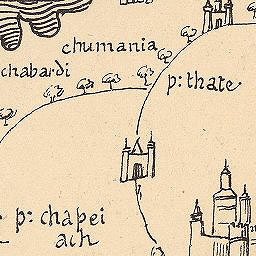 chumania
chabardi
p: thate
p: chapei
ach